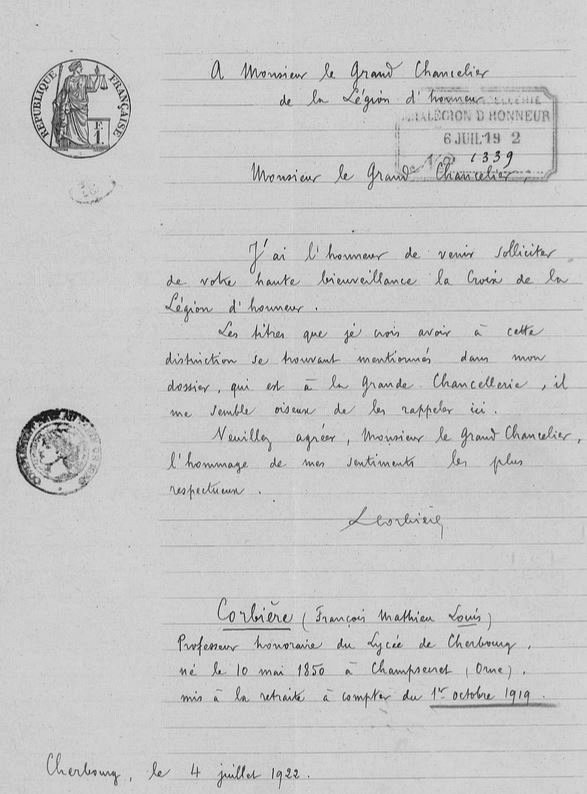 RÉPUBLIQUE FRANÇAISE
A Monsieur le Grand Chancelier
de la Légion d'honneur.
LÉGION D'HONNEUR
6 JUIL 19 2
N° 1339
Monsieur le Grand Chancelier,
J'ai l'honneur de venir solliciter
de votre haute bienveillance la Croix de la
Légion d'honneur.
Les titres que je crois avoir à cette
distinction se trouvant mentionnés dans mon
dossier, qui est à la Grande Chancellerie, il
me semble oiseux de les rappeler ici.
Veuillez agréer, Monsieur le Grand Chancelier,
l'hommage de mes sentiments les plus
respectueux.
LCorbière
Corbière (François Mathieu Louis)
Professeur honoraire du Lycée de Cherbourg,
né le 10 mai 1850 à Champsecret (Orne),
mis à la retraite à compter du 1er octobre 1919.
Cherbourg, le 4 juillet 1922.